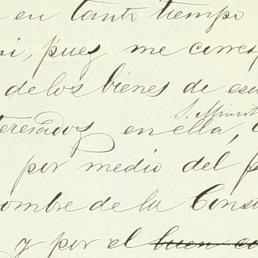 en tanto tiempo
pues me corres
de los bienes de es
S. Minist
teresados en ella,
por medio del p
ombre de la Cons
y por el buen co